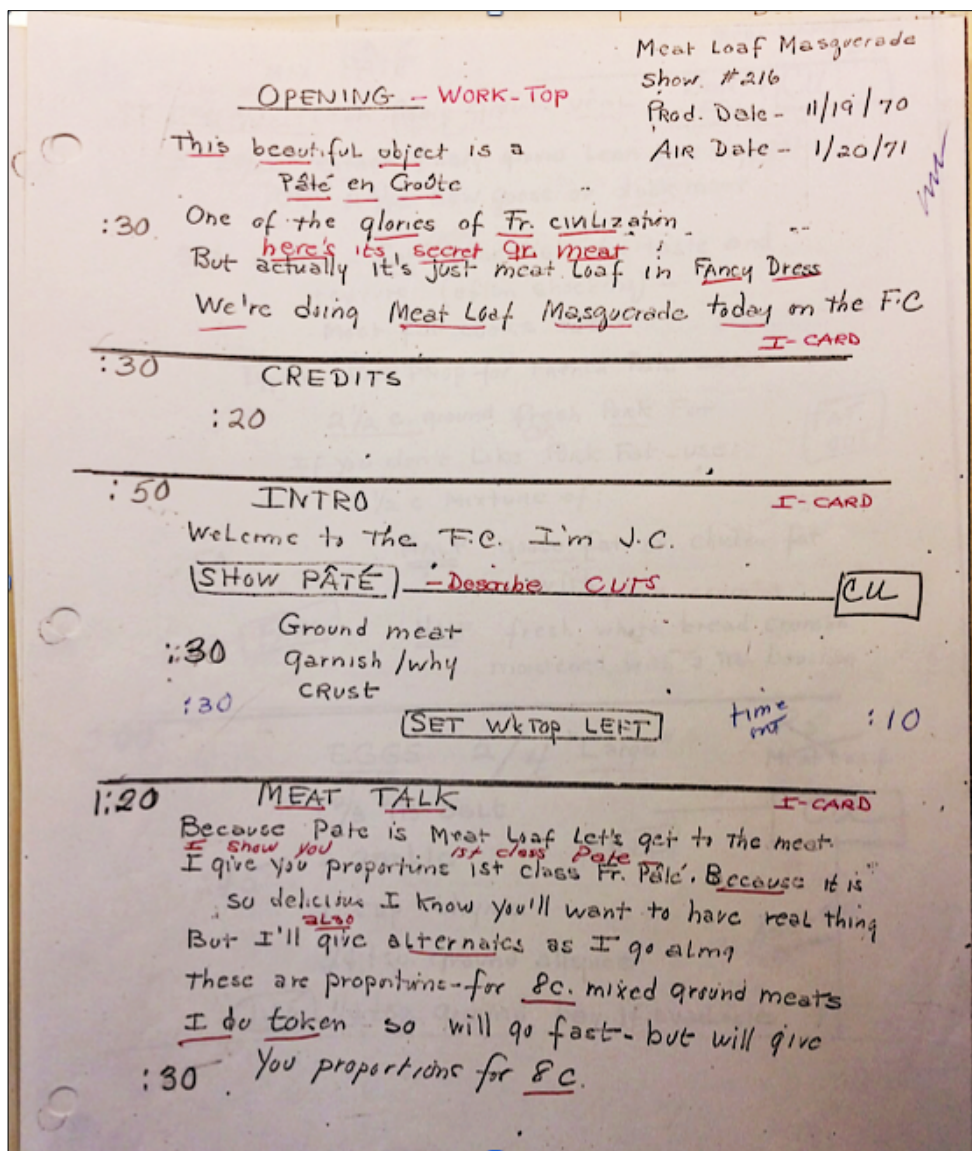 Meat Loaf Masquerade
Show #216
OPENING - WORK-TOP
Prod. Date - 11/19/70
AIR Date - 1/20/71
This beautiful object is a
Pâté en Croûte
:30 One of the glories of Fr. civilization
here's its secret gr. meat
But actually it's just meat Loaf in Fancy Dress
We're doing Meat Loaf Masquerade today on the F.C
I-CARD
:30 CREDITS
:20
:50 INTRO I-CARD
Welcome to the F.C. I'm J.C.
SHOW PÂTÉ - Describe CUTS CU
Ground meat
:30 garnish / why
CRUST
:30
SET WkTop LEFT time :10
1:20 MEAT TALK I-CARD
Because Pate is Meat Loaf Let's get to the meat.
I show you 1st class Pate
I give you proportions 1st class Fr. Pâté. Because it is
so delicious I know you'll want to have real thing
also
But I'll give alternates as I go along
These are proportions - for 8c. mixed ground meats
I do token so will go fast - but will give
:30 You proportions for 8 c.